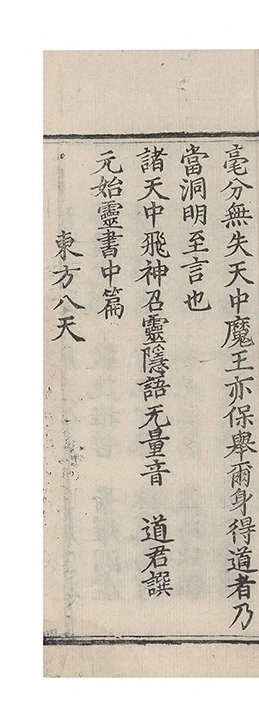 毫分無失天中魔王亦保舉爾身得道者乃
當洞明至言也
諸天中飛神召靈隱語无量音　道君譔
元始靈書中篇
東方八天